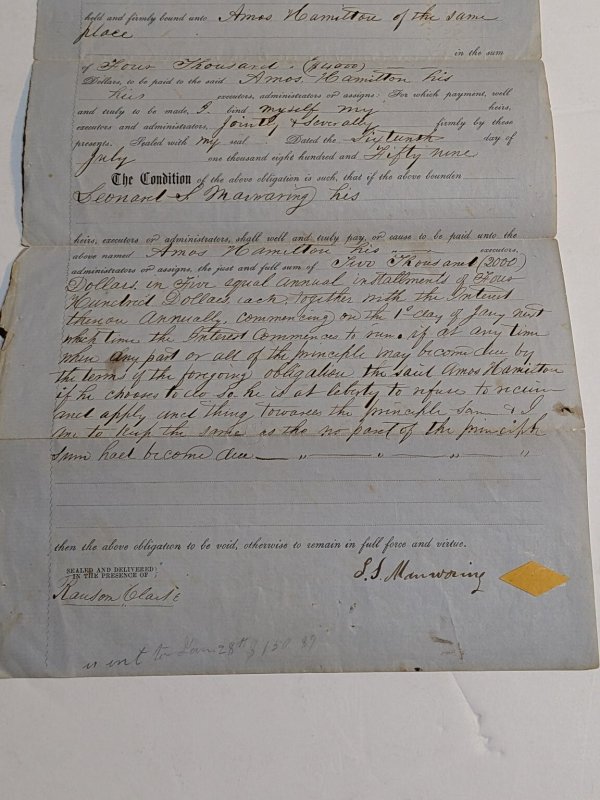 held and firmly bound unto Amos Hamilton of the same
place
in the sum
of Four Thousand ($4000)
Dollars, to be paid to the said Amos Hamilton his
his executors, administrators or assigns: For which payment, well
and truly to be made, I bind myself my heirs,
executors and administrators, Jointly & Severally firmly by these
presents. Sealed with my seal Dated the Sixteenth day of
July one thousand eight hundred and Fifty nine
The Condition of the above obligation is such, that if the above bounden
Leonard S Manwaring his
heirs, executors or administrators, shall well and truly pay, or cause to be paid unto the
above named Amos Hamilton his executors,
administrators or assigns, the just and full sum of Two Thousand (2000)
Dollars, in Five equal annual installments of Four
Hundred Dollars each, together with the Interest
thereon Annually, commencing on the 1st day of Jany next
which time the Interest Commences to run. if at any time
when any part or all of the principle may become due by
the terms of the foregoing obligation the said Amos Hamilton
if he chooses to do So, he is at liberty to refuse to receive
and apply any thing towards the principle sum & I
am to keep the same as tho no part of the principle
sum had become due — " — " — " — "
then the above obligation to be void, otherwise to remain in full force and virtue.
SEALED AND DELIVERED
IN THE PRESENCE OF
L. S. Manwaring
Ransom Clark
int to Jan 28th $150.89